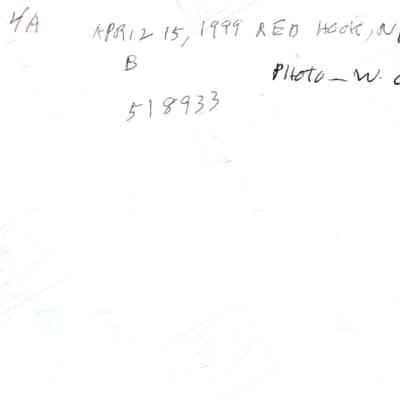 4A APRIL 15, 1999 RED HOOK, N
B PHOTO - W.
518933